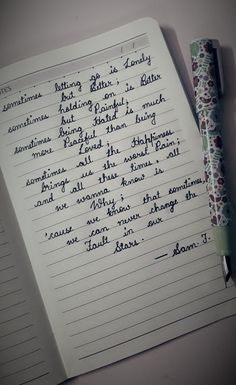 NOTES
sometimes letting go is Lonely
but Bitter;
sometimes holding on is Bitter
but Painful;
sometimes being Hated is much
more Peaceful than being
Loved;
sometimes all the Happiness
brings us the worst Pain;
and all these times, all
we wanna know is
Why;
'cause we know that sometimes,
we can never change the
Fault in our
Stars.
— Sam T.